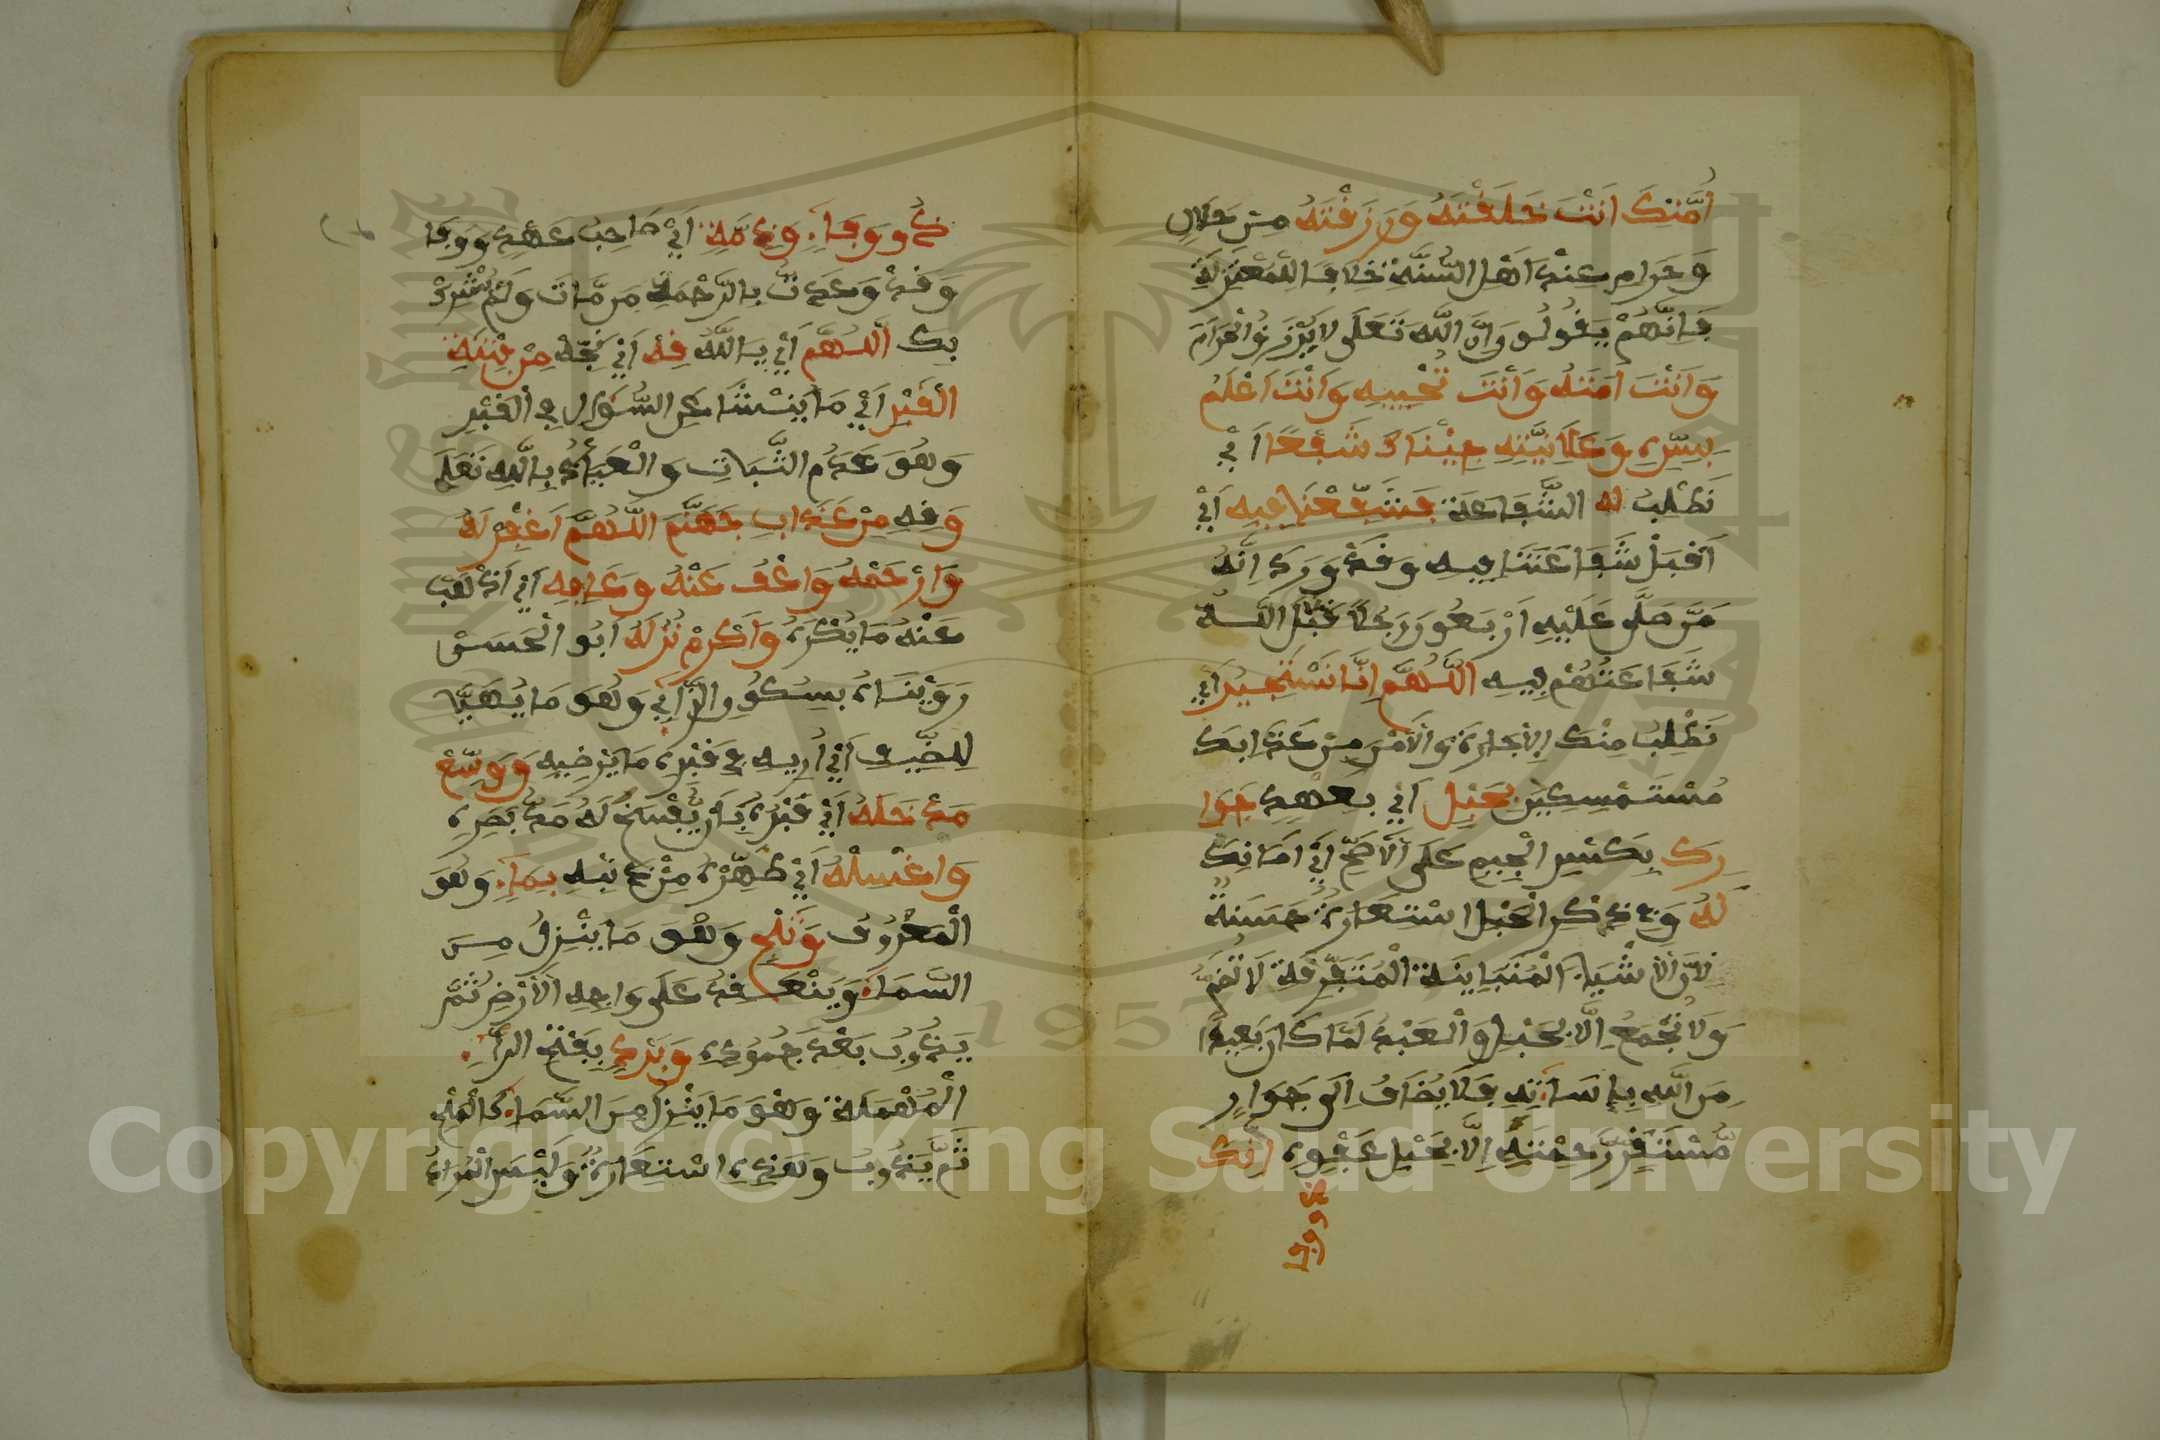 أُمَّتِكَ أَنْتَ خَلَقْتَهُ وَرَزَقْتَهُ مِن حَلَالٍ
وَحَرَامٍ عِنْدَ اَهْلِ السُّنَّةِ خلافا للْمُعْتَزِلَةِ
فَإِنَّهُمْ يَقُولُو وَإِنَّ اللَّهَ تَعَلَى لاَ يَرْزُقُ الْحَرَامَ
وَأَنْتَ أَمَتَّهُ وَأَنْتَ تُحْيِيهِ وَأَنْتَ اَعْلَمُ
بِسِرِّهِ وَعَلَانِيَّتِهِ جِئْنَاكَ شَفِعًا اَيْ
نَطْلِبُ له الشَّفَاعَة فَشَفِّعْنَا فِيهِ اَيْ
اَقْبَلْ شَفَاعَتَنَا فِيهِ وَقَدْ وَرَدَ اِنَّهُ
مَن صَلَّى عَلَيْهِ اَرْبَعُونَ رَجُلاً قَبِلَ اللَّهُ
شَفَاعَتَهُمْ فِيهِ اَللَّهُمَّ إِنَّا نَسْتَجِيرُ أَيْ
نَطْلِبُ مِنْكَ الاِجَارَةَ وَالأَمْنَ مِنْ عَذَابِكَ
مُسْتَمْسِكِينَ بِحَبْلِ اَيْ بِعَهْدِ جِوَا
رِكَ بِكَسْرِ الْجِيمِ عَلَى الأَصَحِّ اَيْ اَمَانِكَ
لَهُ وَفِي ذِكْرِ الْحَبْلِ اسْتِعَارَةٌ حَسَنَةٌ
لأَنَّ الأَشْيَاءَ الْمُتَبَايِنَةَ الْمُتَفَرِّقَةَ لَا تُضَمُّ
وَلَا تُجْمَعُ إِلَّا بِحَبْلٍ وَالْعَبْدُ لَمَّا كَانَ بَعِيدًا
مِنَ اللَّهِ بِإِسَاءَتِهِ فَلَا يُضَافُ اِلَى جِوَارِ
مُسْتَقَرِّ رَحْمَتِهِ إِلَّا بِحَبْلِ عَفْوِهِ اِنَّكَ
ذو وفا
ذُو وَفَاءٍ وَذِمَّةٍ اَيْ صَاحِبُ عَهْدٍ وَوَفَا
وَقَدْ وَعَدتَّ بِالرَّحْمَةِ مَن مَّاتَ وَلَمْ يُشْرِكْ
بِكَ اَللَّهُمَّ أَيْ يَا اللَّهُ قِهْ اَيْ نَجِّهْ مِنْ فِتْنَةِ
الْقَبْرِ اَيْ مَا يَنْشَأُ عَنِ السُّؤَالِ فِي الْقَبْرِ
وَهُوَ عَدَمُ الثَّبَاتِ وَالْعِيَاذُ بِاللَّهِ تَعَلَى
وَقِهِ مِنْ عَذَابِ جَهَنَّمَ اللَّهُمَّ اَغْفِرْ لَهُ
وَارْحَمْهُ وَاعْفُ عَنْهُ وَعَافِهِ اَيْ اَذْهَبْ
عَنْهُ مَا يُكْرَهُ وَاَكْرِمْ نُزُلَهُ اَبُو الْحَسَنْ
رَوَيْنَاهُ بِسُكُونِ الزَّايِ وَهُوَ مَا يُهَيَّأُ
لِلضَّيْفِ اَيْ أَرِيهِ فِي قَبْرِهِ مَا يُرْضِيهِ وَوَسِّعْ
مَدْخَلَهُ اَيْ قَبْرَهُ بِأَن يُّفْسَحَ لَهُ مَدَّ بَصَرِهِ
وَاغْسِلْهُ أَيْ طَهِّرْهُ مِنْ ذَنْبِهِ بِمَاءٍ وَهُوَ
الْمَعْرُوف وَثَلْجٍ وَهْوَ مَا يَنْزِلُ مِنَ
السَّمَاءِ وَيَنْعَقِدُ عَلَى وَجْهِ الأَرْضِ ثُمَّ
يَذُوبُ بَعْدَ جُمُودِهِ وَبَرَدٍ بِفَتْحِ الرَّاءِ
الْمُهْمَلَةِ وَهْوَ مَا يَنْزِلُ مِنَ السَّمَاءِ كَالْمِلْحِ
ثُمَّ يَذُوبُ وَهَذِهِ اسْتِعَارَةٌ وَلَيْسَ الْمُرَادُ
Copyright © King Saud University
1957